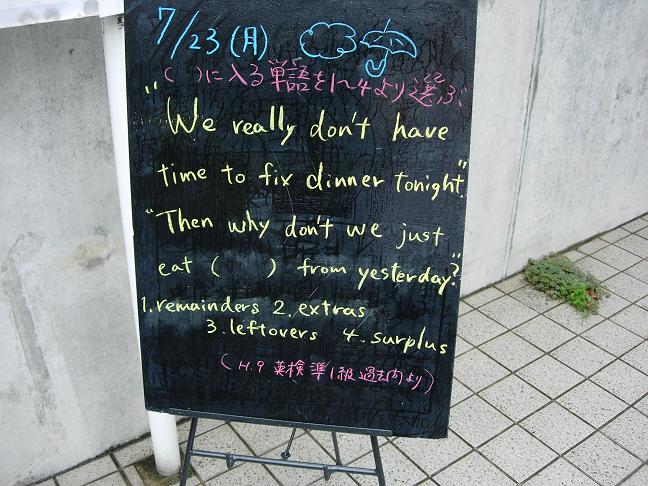 7/23(月)
( )に入る単語を1~4より選ぶ
"We really don't have
time to fix dinner tonight."
"Then why don't we just
eat (    ) from yesterday?"
1. remainders 2. extras
3. leftovers 4. surplus
(H.9 英検準1級過去内より)